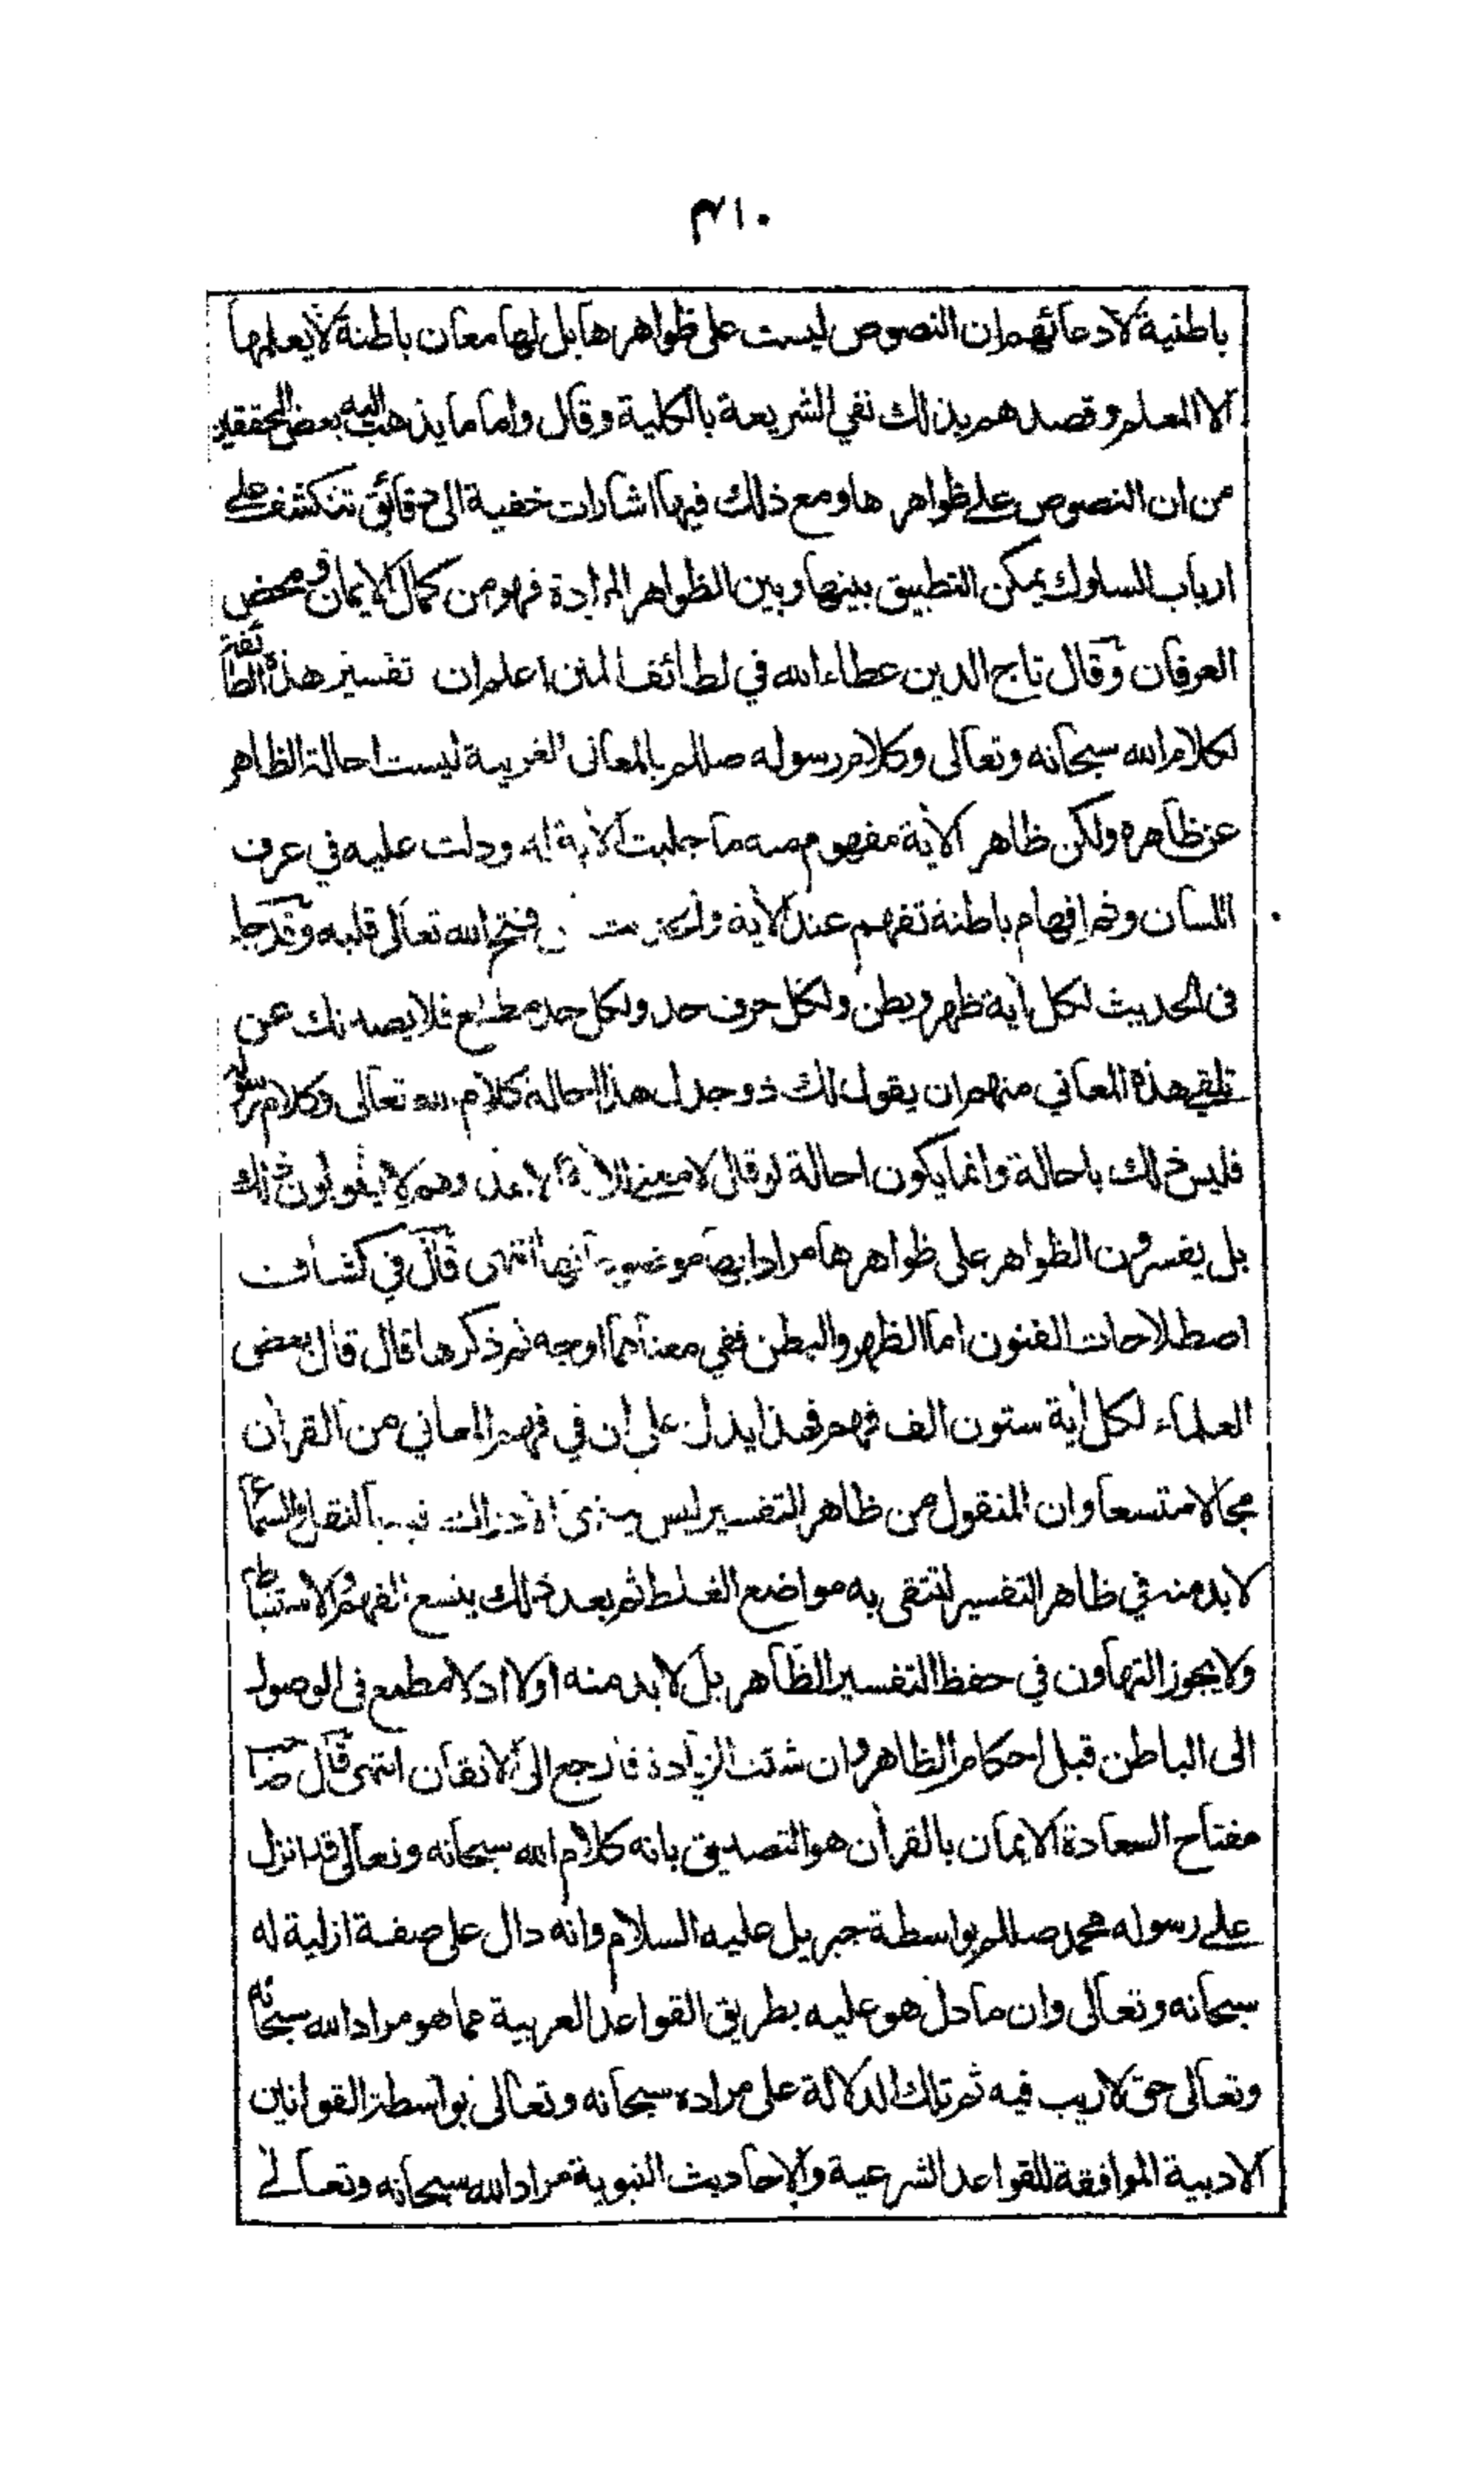 ٣١٠
باطنية لادعائهم ان النصوص ليست على ظواهرها بل لها معان باطنة لا يعلمها
الا المعلم وقصدهم بذلك نفي الشريعة بالكلية وقال واما ما يذهب اليه بعض المحققين
من ان النصوص على ظواهرها ومع ذلك فيها اشارات خفية الى دقائق تنكشف على
ارباب السلوك يمكن التطبيق بينها وبين الظواهر المرادة فهو من كمال الايمان ومحض
العرفان وقال تاج الدين عطاء الله في لطائف المنن اعلم ان تفسير هذه الطائفة
لكلام الله سبحانه وتعالى وكلام رسوله صللم بالمعاني الغريبة ليست احالة الظاهر
عن ظاهره ولكن ظاهر الآية مفهوم منه ما جلبت الآية له ودلت عليه في عرف
اللسان وثم افهام باطنة تفهم عند الآية فتح الله تعالى قلبه وقد جاء
في الحديث لكل آية ظهر وبطن ولكل حرف حد ولكل حد مطلع فلا يصدنك عن
تلقي هذه المعاني منهم ان يقول لك ذو جدل هذا احالة كلام الله تعالى وكلام رسوله
فليس ذلك باحالة وانما يكون احالة لو قال لا معنى للآية الا هذا وهم لا يقولون ذلك
بل يفسرون الظواهر على ظواهرها مرادا بها موضوعاتها انتهى قال في كشاف
اصطلاحات الفنون اما الظهر والبطن ففي معناهما اوجه ثم ذكرها قال قال بعض
العلماء لكل آية ستون الف فهم فهذا يدل على ان في فهم المعاني من القرآن
مجالا متسعا وان المنقول من ظاهر التفسير ليس النقل والسماع
لا بد منه في ظاهر التفسير لتتقى به مواضع الغلط ثم بعد ذلك يتسع الفهم والاستنباط
ولا يجوز التهاون في حفظ التفسير الظاهر بل لا بد منه اولا اذ لا مطمع في الوصول
الى الباطن قبل احكام الظاهر وان شئت الزيادة فارجع الى الاتقان انتهى قال صاحب
مفتاح السعادة الايمان بالقرآن هو التصديق بانه كلام الله سبحانه وتعالى قد انزل
على رسوله محمد صللم بواسطة جبريل عليه السلام وانه دال على صفة ازلية له
سبحانه وتعالى وان ما دل هو عليه بطريق القواعد العربية مما هو مراد الله سبحانه
وتعالى حق لا ريب فيه ثم تلك الدلالة على مراده سبحانه وتعالى بواسطة القوانين
الادبية الموافقة للقواعد الشرعية والاحاديث النبوية مراد الله سبحانه وتعالى